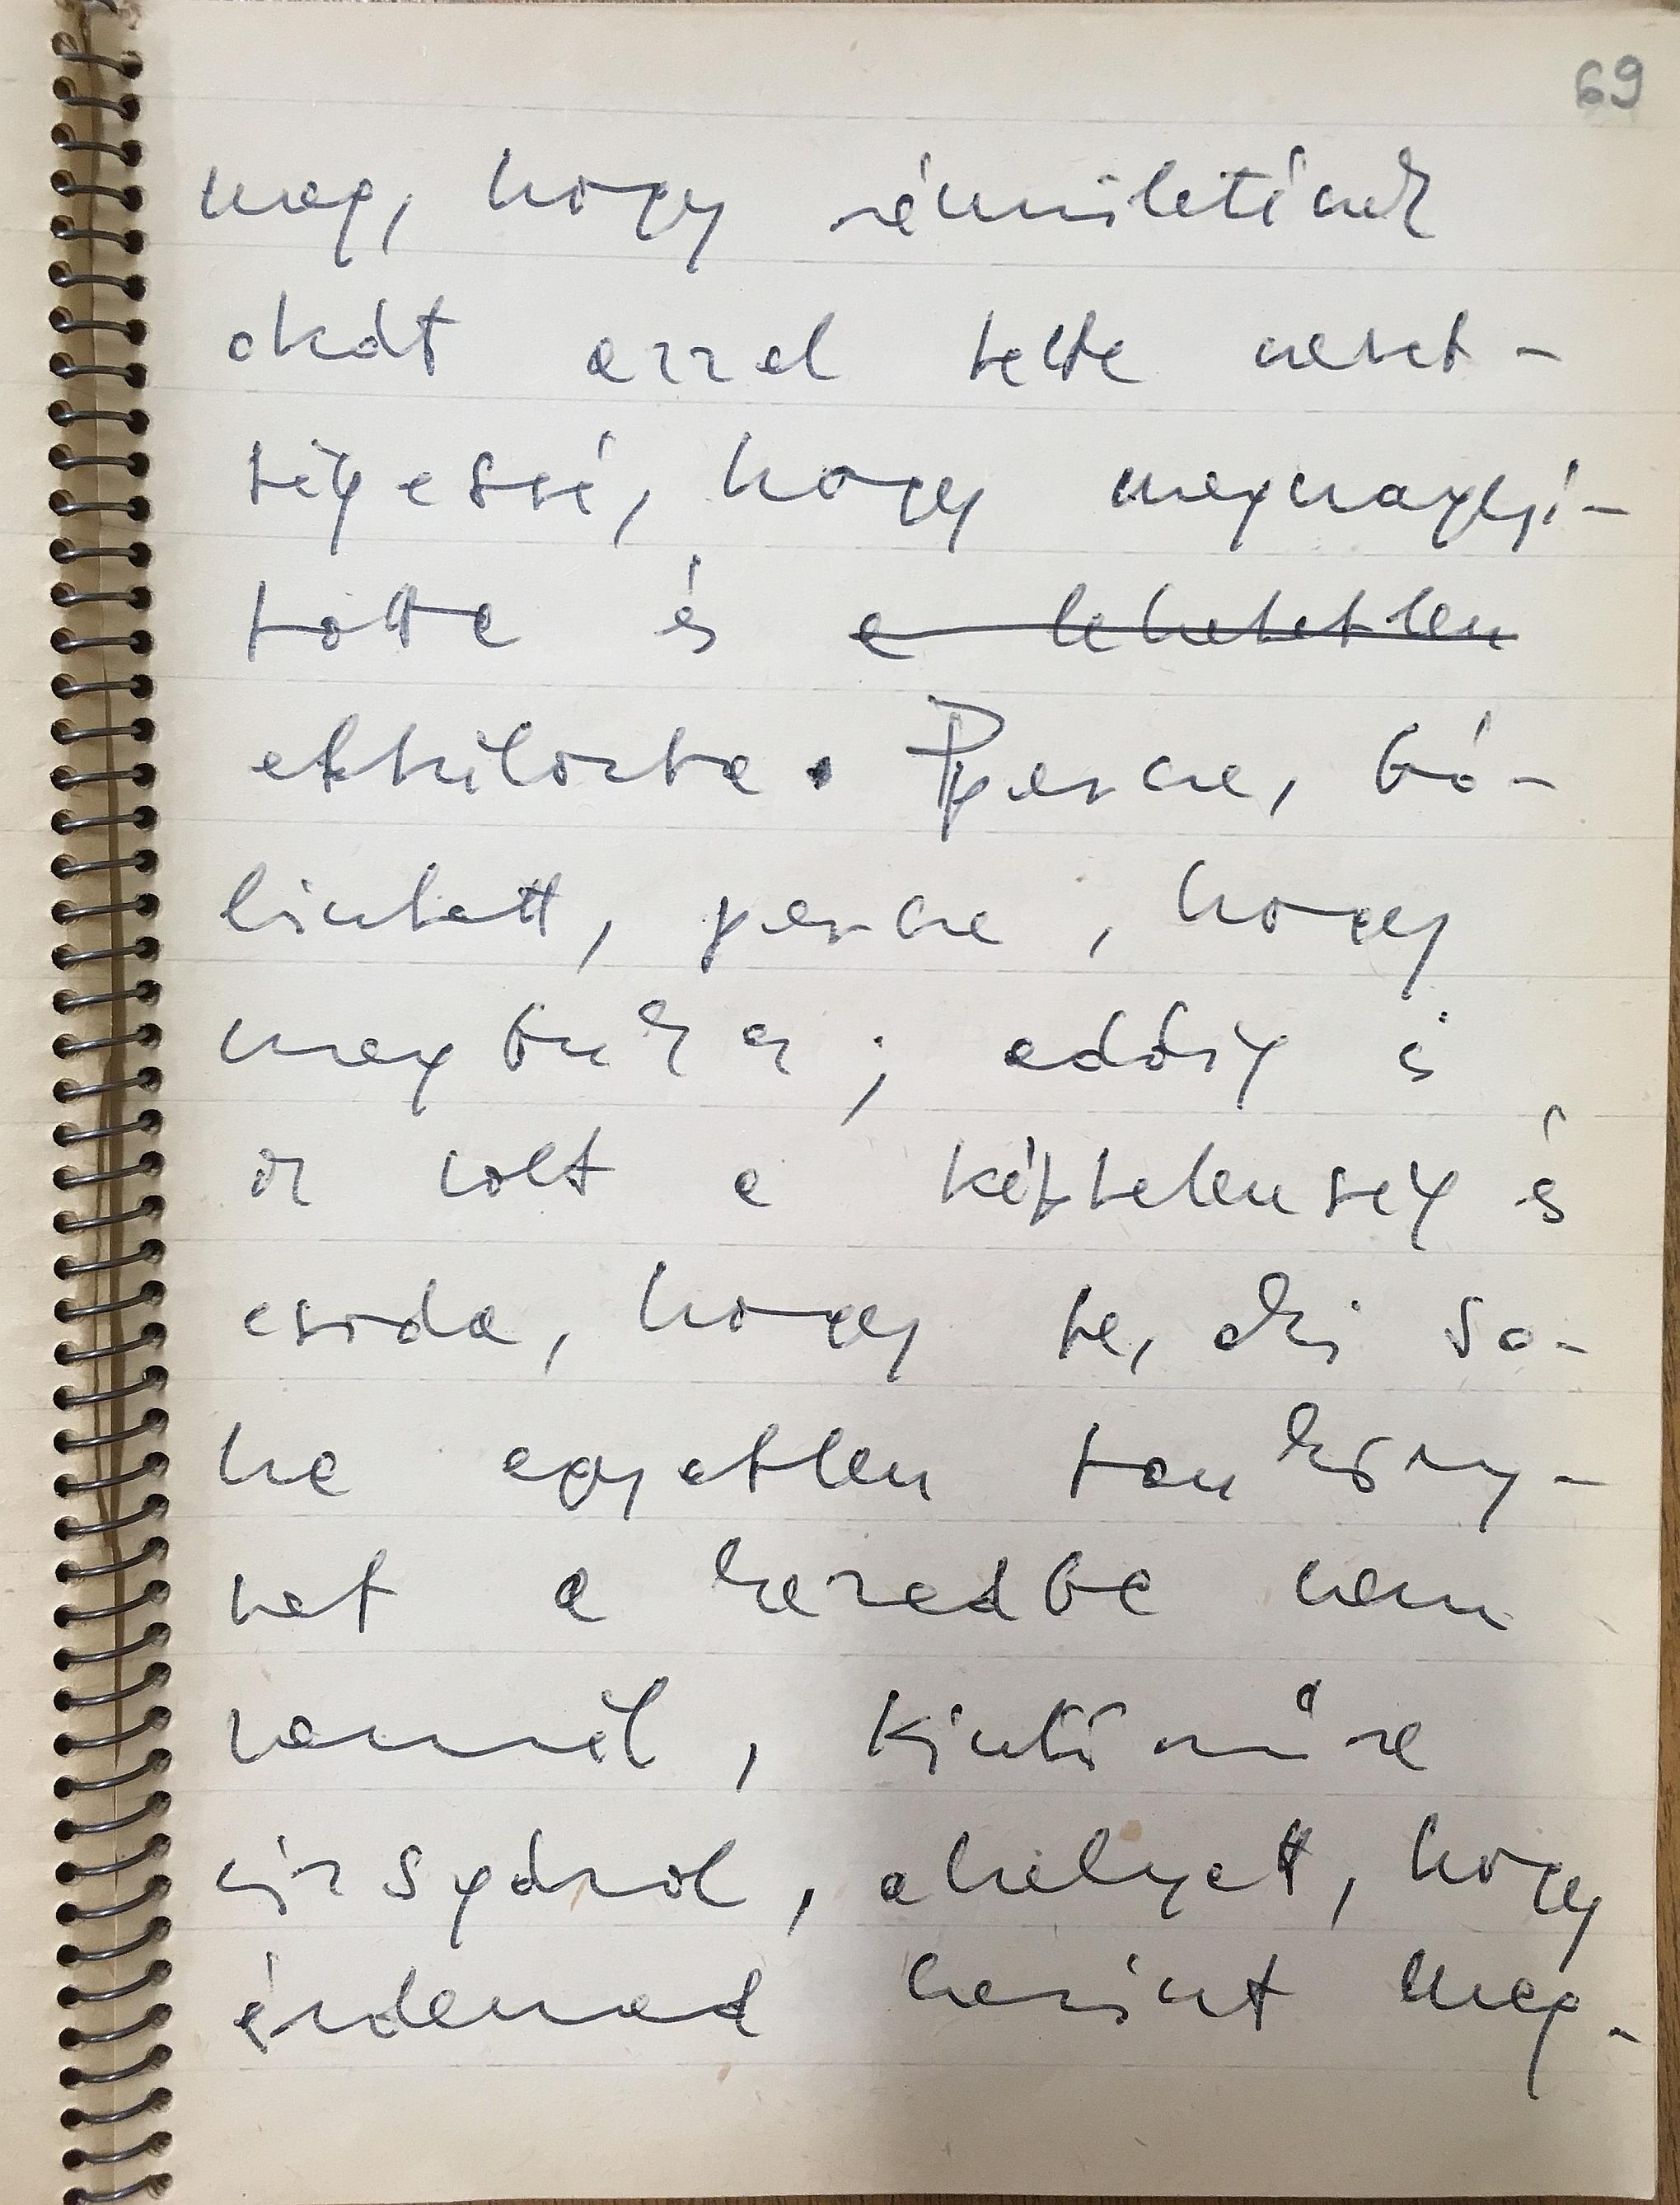 69
meg, hogy rémületének
okát azzal tette nevet-
ségessé, hogy megnagyí-
totta és a lehetetlen
eltúlozta. Persze, bó-
lintott, persze, hogy
megbuksz; eddig is
az volt a képtelenség és
csoda, hogy te, aki so-
ha egyetlen tanköny-
vet a kezedbe nem
vennél, kitűnőre
vizsgázol, ahelyett, hogy
érdemed szerint meg-